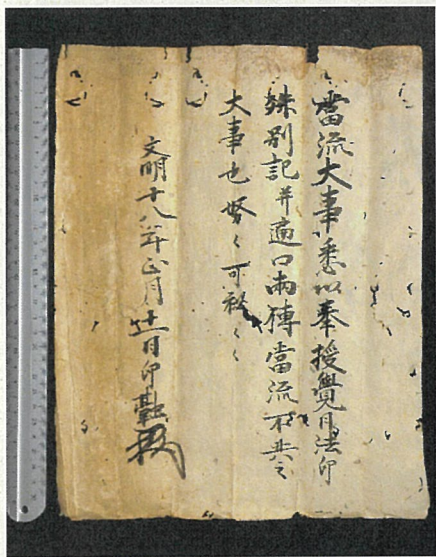 當流大事悉以奉授覺日法印
殊別記并適口兩傳當流不共之
大事也努〻可秘〻〻
文明十八年正月廿一日印融